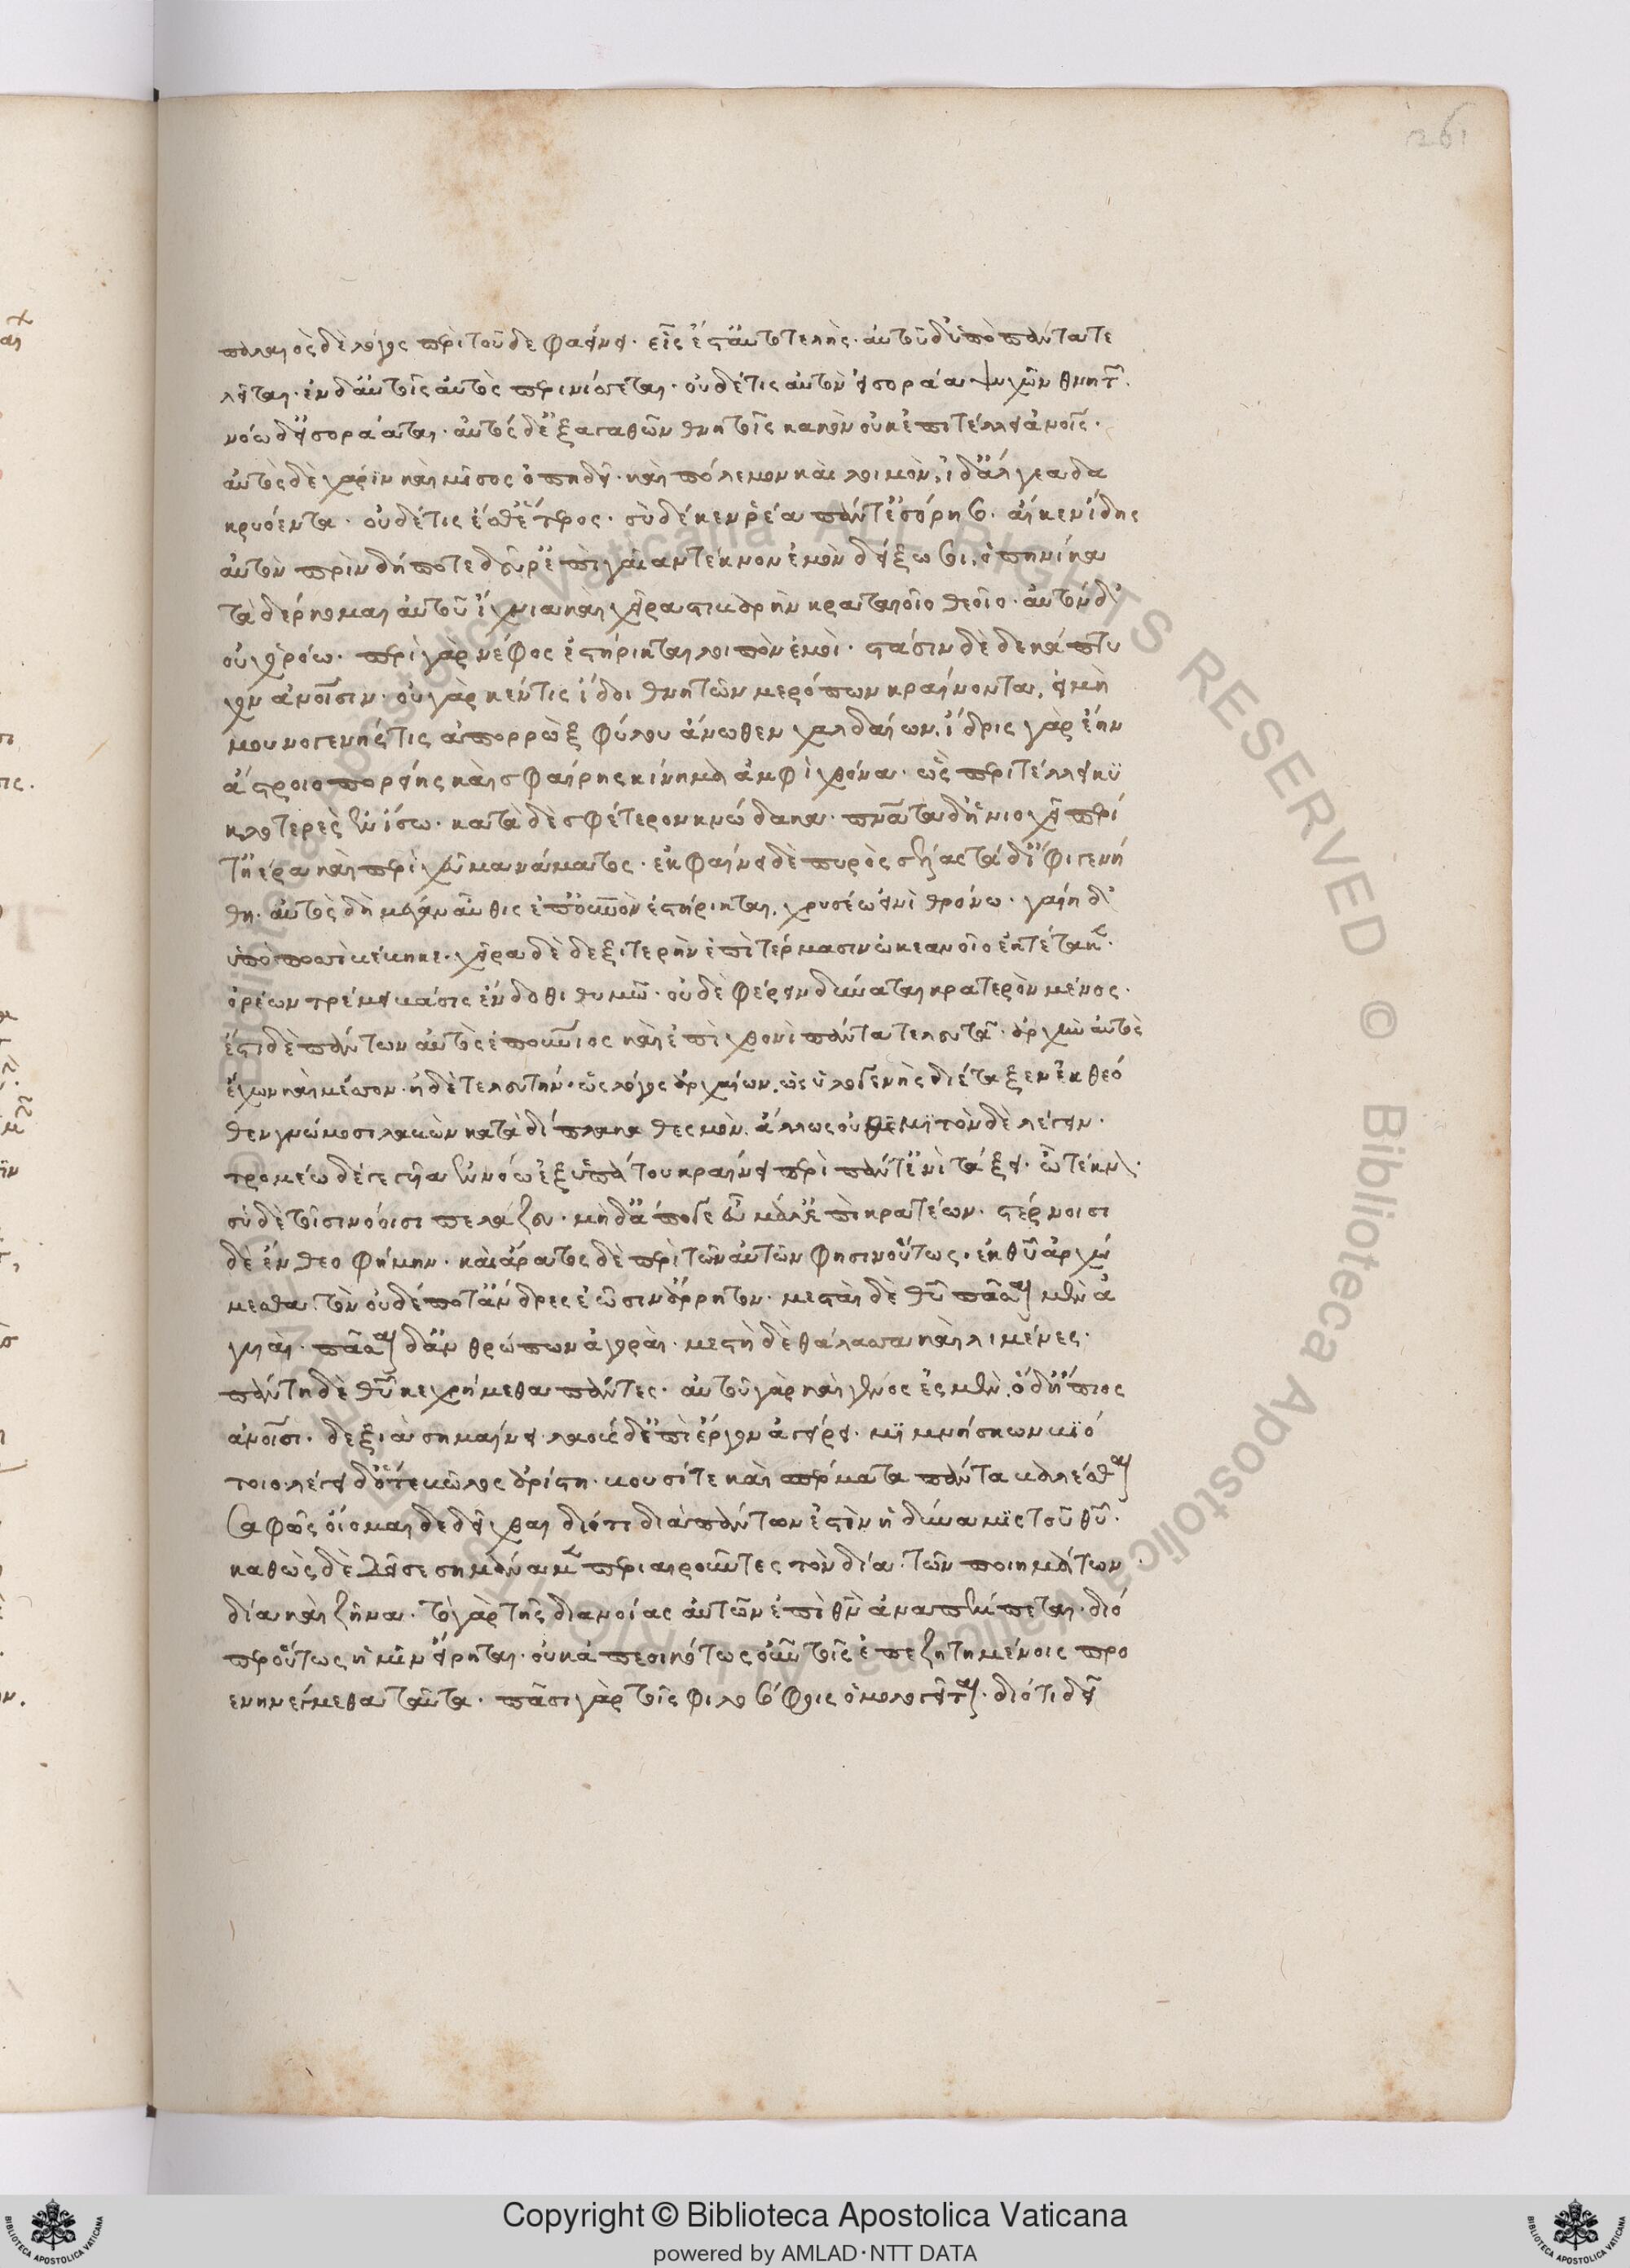 261
παλαιὸς δὲ λόγος περὶ τοῦδε φαείνει. εἷς ἔστ' αὐτοτελής. αὐτοῦ δ' ὕπο πάντα τε
λεῖται. ἐν δ' αὐτοῖς αὐτὸς περινίσσεται. οὐδέ τις αὐτὸν εἰσοράᾳ ψυχῶν θνητῶν.
νόῳ δ' εἰσοράαται. αὐτὸς δ' ἐξ ἀγαθῶν θνητοῖς κακὸν οὐκ ἐπιτέλλει ἀνοις.
αὐτὸς δὲ χάριν καὶ μῖσος ὀπηδεῖ. καὶ πόλεμον καὶ λοιμὸν, ἰδ' ἄλγεα δα
κρυόεντα. οὐδέ τις ἔσθ' ἕτερος. σὺ δέ κεν ῥέα πάντ' ἐσόρησο. αἴ κεν ἴδῃς
αὐτὸν πρὶν δή ποτε δεῦρ' ἐπὶ γαῖαν τέκνον ἐμὸν δείξω σοι, ὁπηνίκα
τὰ δέρκομαι αὐτοῦ ἴχνια καὶ χεῖρα στιβαρὴν κραταιοῖο θεοῖο. αὐτὸν δ'
οὐχ ὁρόω. περὶ γὰρ νέφος ἐστήρικται λοιπὸν ἐμοί. στάσιν δὲ δεκάπτυ
χον ἀνοισιν. οὐ γάρ κέν τις ἴδοι θνητῶν μερόπων κραίνοντα, εἰ μὴ
μουνογενής τις ἀπορρὼξ φύλου ἄνωθεν χαλδαίων. ἴδρις γὰρ ἔην
ἄστροιο πορείης καὶ σφαίρης κίνημ' ἀμφὶ χθόνα. ὡς περιτέλλει κυ
κλοτερὲς ἐν ἴσῳ. κατὰ δὲ σφέτερον κνώδακα. πνεύματα δ' ἡνιοχεῖ περί
τ' ἠέρα καὶ περὶ χεῦμα νάματος. ἐκφαίνει δὲ πυρὸς σέλας τὰ δ' ἰφιγενή
τη. αὐτὸς δὴ μέγαν αὖθις ἐπ' οὐρανὸν ἐστήρικται, χρυσέῳ εἰνὶ θρόνῳ. γαίη δ'
ὑπὸ ποσσὶ βέβηκε. χεῖρα δὲ δεξιτερὴν ἐπὶ τέρμασιν ὠκεανοῖο ἐκτέτακεν.
ὀρέων τρέμει βάσις ἔνδοθι θυμῷ. οὐδὲ φέρειν δύναται κρατερὸν μένος.
ἔστι δὲ πάντων αὐτὸς ἐπουράνιος καὶ ἐπὶ χθονὶ πάντα τελευτᾷ. ἀρχὴν αὐτὸς
ἔχων καὶ μέσσον. ἠδὲ τελευτήν. ὡς λόγος ἀρχαίων, ὡς ὑλογενὴς διέταξεν ἐκ θεό
θεν γνώμοσι λαβὼν κατὰ δίπλακα θεσμόν. ἄλλως οὐ θεμιτὸν δὲ λέγειν.
τρομέω δέ γε γυῖα ἐν νόῳ ἐξ ὑπάτου κραίνει περὶ πάντ' ἐνὶ τάξει. ὦ τέκνον.
σὺ δὲ τοῖσι νόοισι πελάζευ. μηδ' ἀπόγε εὖ μάλ' ἐπικρατέων. στέρνοισι
δὲ ἔνθεο φήμην. καὶ ἄρατος δὲ περὶ τῶν αὐτῶν φησιν οὕτως. ἐκ θῦ ἀρχώ
μεσθα. τὸν οὐδέποτ' ἄνδρες ἐῶσιν ἄρρητον. μεσταὶ δὲ θῦ πᾶσαι μὲν ἀ
γυιαί. πᾶσαι δ' ἀνθρώπων ἀγοραί. μεστὴ δὲ θάλασσα καὶ λιμένες.
πάντῃ δὲ θῦ κεχρήμεθα πάντες. αὐτοῦ γὰρ καὶ γένος ἐσμὲν. ὁ δ' ἤπιος
ἀνοισι. δεξιὰ σημαίνει. λαοὺς δ' ἐπὶ ἔργον ἀγείρει. μιμνήσκων βιό
τοιο. λέγει δ' ὅτε βῶλος ἀρίστη. βουσί τε καὶ σπέρματα πάντα βαλέσθαι
Σαφῶς οἴομαι δεδεῖχθαι διότι διὰ πάντων ἐστὶν ἡ δύναμις τοῦ θῦ.
καθὼς δὲ δεῖ σεσημάγκαμεν περιαιροῦντες τὸν δία. τῶν ποιημάτων
δία καὶ ζῆνα. τὸ γὰρ τῆς διανοίας αὐτῶν ἐπὶ θν ἀναπέμπεται. διό
περ οὕτως ἡμῖν εἴρηται. οὐκ ἀπεοικότως οὖν τοῖς ἐπεζητημένοις προ
ενηνέγμεθα ταῦτα. πᾶσι γὰρ τοῖς φιλοσόφοις ὁμολογεῖται. διότι δεῖ